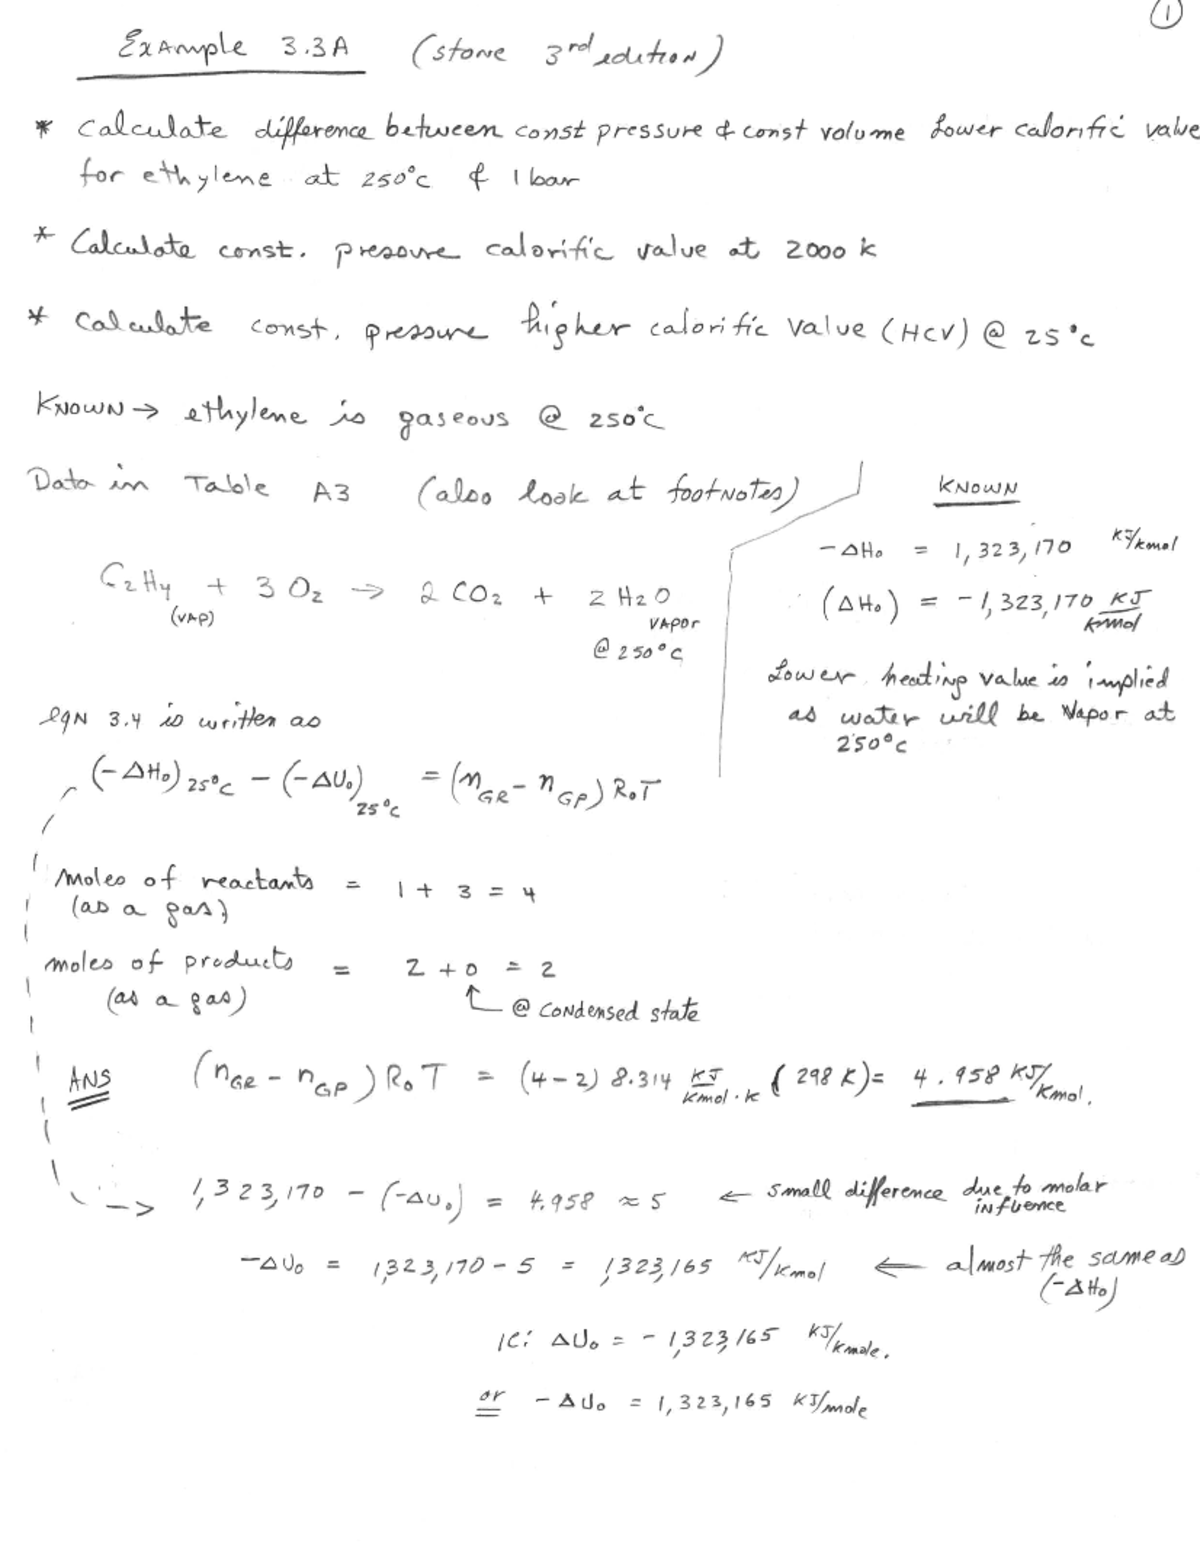 1
Example 3.3A (stone 3rd edition)
* Calculate difference between const pressure & const volume Lower calorific value
for ethylene at 250°C & 1 bar
* Calculate const. pressure calorific value at 2000 K
* Calculate const. pressure higher calorific value (HCV) @ 25°C
KNOWN → ethylene is gaseous @ 250°C
Data in Table A3 (also look at footnotes)
C2H4 + 3 O2 → 2 CO2 + 2 H2O
(VAP) VAPOR
@ 250°C
KNOWN
-ΔH0 = 1,323,170 KJ/kmol
(ΔH0) = -1,323,170 KJ/kmol
Lower heating value is implied
as water will be Vapor at
250°C
eqn 3.4 is written as
(-ΔH0)25°C - (-ΔU0)25°C = (nGR - nGP) R0T
Moles of reactants = 1 + 3 = 4
(as a gas)
moles of products = 2 + 0 = 2
(as a gas) ↑ @ condensed state
ANS (nGR - nGP) R0T = (4-2) 8.314 KJ/Kmol·K (298 K) = 4.958 KJ/Kmol.
--> 1,323,170 - (-ΔU0) = 4.958 ≈ 5 ← small difference due to molar
influence
-ΔU0 = 1,323,170 - 5 = 1,323,165 KJ/Kmol ← almost the same as
(-ΔH0)
ie: ΔU0 = -1,323,165 KJ/Kmole.
or -ΔU0 = 1,323,165 KJ/mole